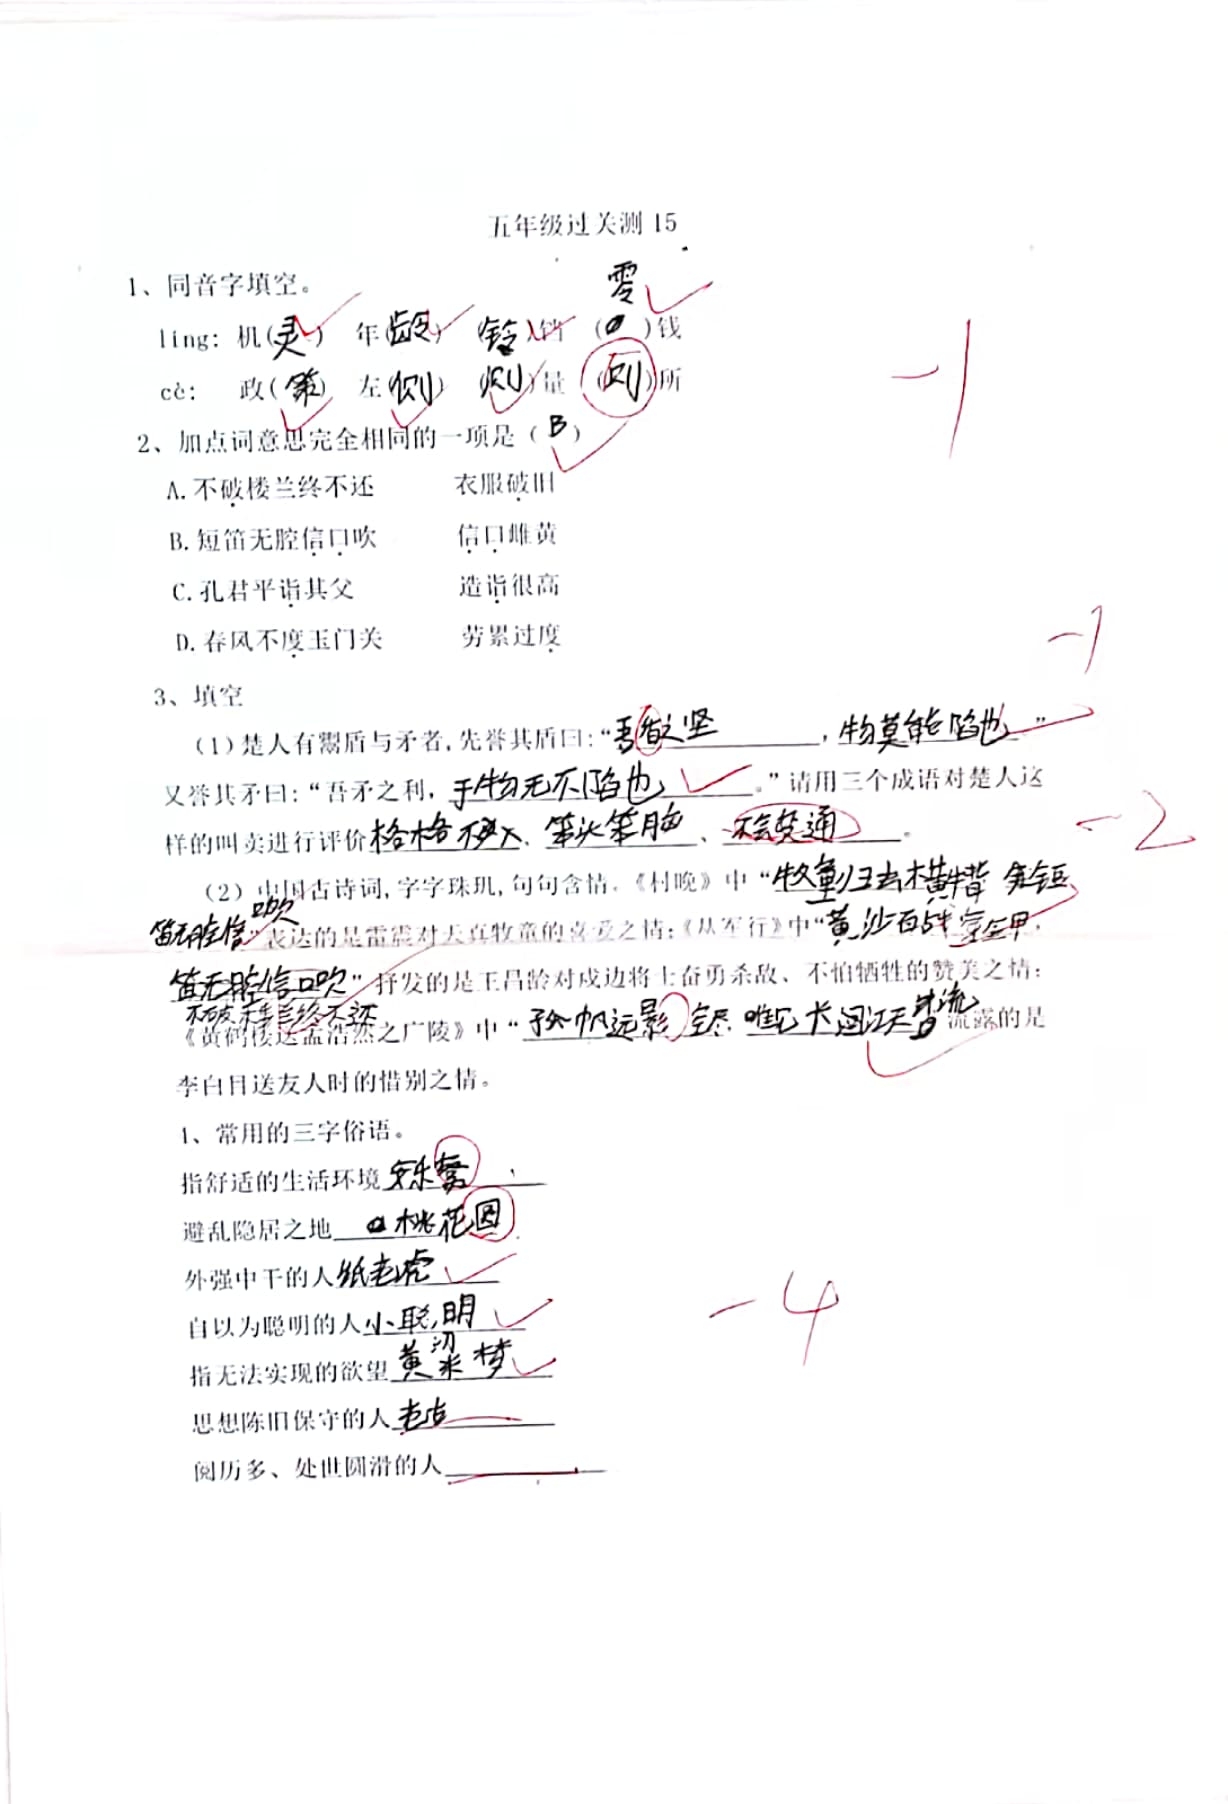 五年级过关测15
1、同音字填空。
零
ling: 机(灵) 年(龄) (铃)铛 ( )钱
cè: 政(策) 左(侧) (测)量 (厕)所
2、加点词意思完全相同的一项是（B）
A.不破楼兰终不还 衣服破旧
B.短笛无腔信口吹 信口雌黄
C.孔君平诣其父 造诣很高
D.春风不度玉门关 劳累过度
-1
-1
3、填空
（1）楚人有鬻盾与矛者,先誉其盾曰:“吾 之坚,物莫能陷也”
又誉其矛曰:“吾矛之利,于物无不陷也。”请用三个成语对楚人这
样的叫卖进行评价格格不入、笨头笨脑、 。
-2
（2）中国古诗词,字字珠玑,句句含情。《村晚》中“牧童归去横牛背
笛无腔信口吹”表达的是雷震对天真牧童的喜爱之情;《从军行》中“黄沙百战穿金甲,
笛无腔信口吹”抒发的是王昌龄对戍边将士奋勇杀敌、不怕牺牲的赞美之情:
不破 终不还
《黄鹤楼送孟浩然之广陵》中“孤帆远影空尽 唯见长 江天 流”流露的是
李白目送友人时的惜别之情。
4、常用的三字俗语。
指舒适的生活环境安乐
避乱隐居之地 桃花
外强中干的人纸老虎
自以为聪明的人小聪明
-4
指无法实现的欲望黄粱梦
思想陈旧保守的人老古
阅历多、处世圆滑的人